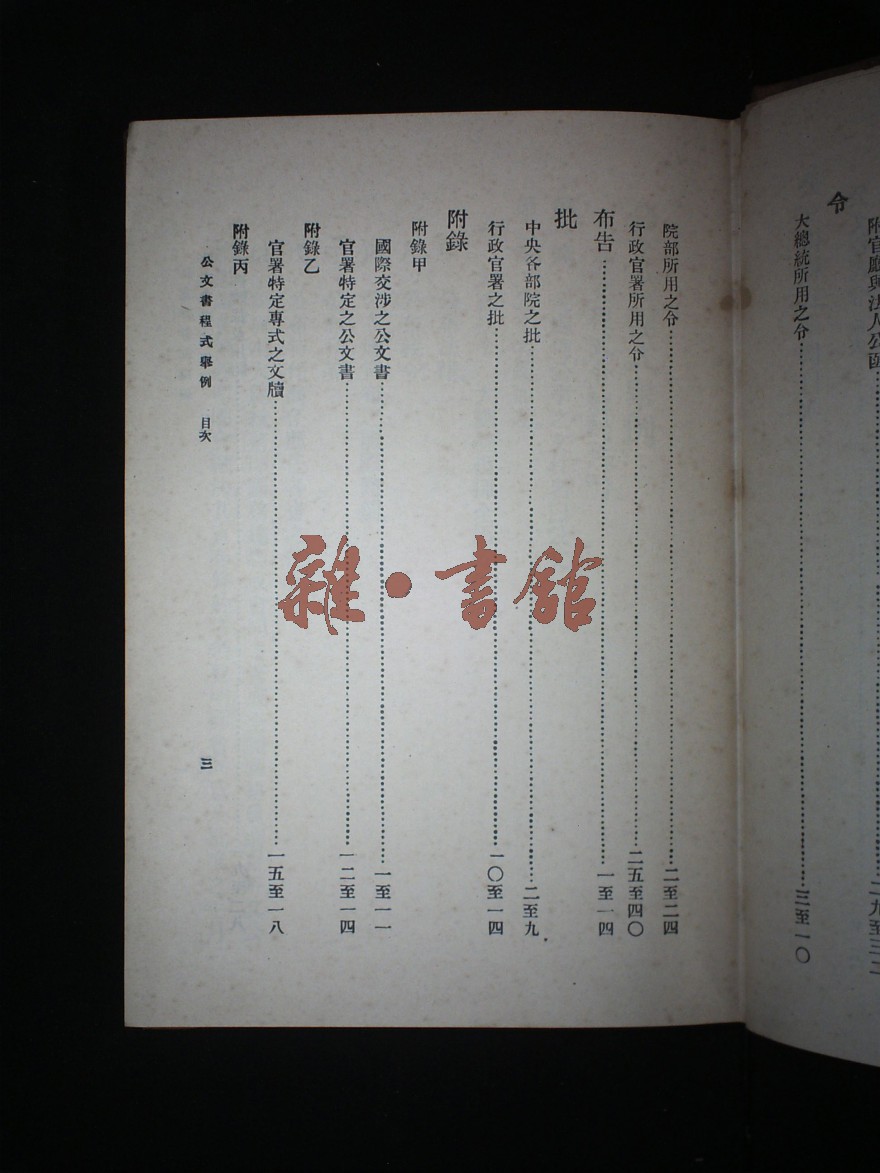 附官廳與法人公函……二九至三二
令
大總統所用之令……三至一〇
院部所用之令……二至二四
行政官署所用之令……二五至四〇
布告……一至一四
批
中央各部院之批……二至九
行政官署之批……一〇至一四
附錄
附錄甲
國際交涉之公文書……一至一一
附錄乙
官署特定之公文書……一二至一四
官署特定專式之文牘……一五至一八
附錄丙
公文書程式舉例 目次 三
雜·書館